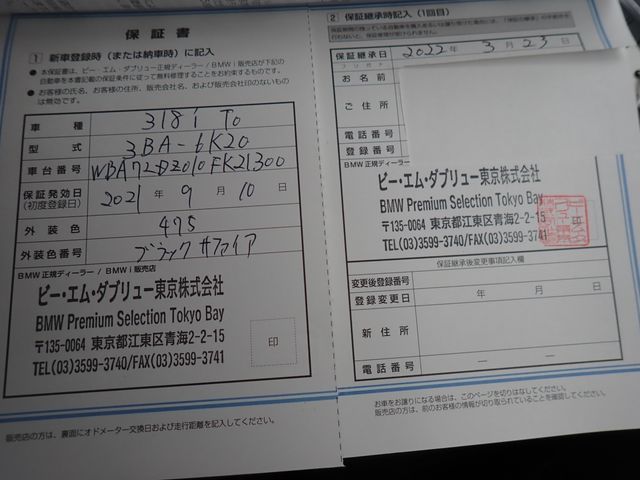 保証書
1 新車登録時（または納車時）に記入
● 本保証書は、ビー・エム・ダブリュー正規ディーラー / BMW i 販売店が下記の
自動車を本書記載の保証条件に従って無料修理することをお約束するものです。
● お客様の氏名、お客様の住所、販売会社名、および販売会社印のないもの
は無効です。
車種 318i To
型式 3BA-6K20
車台番号 WBA72DZ010FK21300
保証発効日 2021 年 9 月 10 日
(初度登録日)
外装色 475
外装色番号 ブラックサファイア
BMW 正規ディーラー / BMW i 販売店
ビー・エム・ダブリュー東京株式会社
BMW Premium Selection Tokyo Bay
〒135-0064 東京都江東区青海2-2-15
TEL(03)3599-3740/FAX(03)3599-3741
印
販売店の方は、裏面にオドメーター交換日および走行距離を記入してください。
2 保証継承時記入（1回目）
保証継承日 2022 年 3 月 23 日
フリガナ
お名前
ご住所
電話番号
登録番号
BMW 正規ディーラー
ビー・エム・ダブリュー東京株式会社
BMW Premium Selection Tokyo Bay
〒135-0064 東京都江東区青海2-2-15
TEL(03)3599-3740/FAX(03)3599-3741
印
保証継承後変更事項記入欄
変更後登録番号
登録変更日 年 月 日
新住所
電話番号 － －
お車をお譲りになる場合は、このページを切りはなしてください。
販売店の方は、前のお客様の情報が切り取られていることを確認してください。